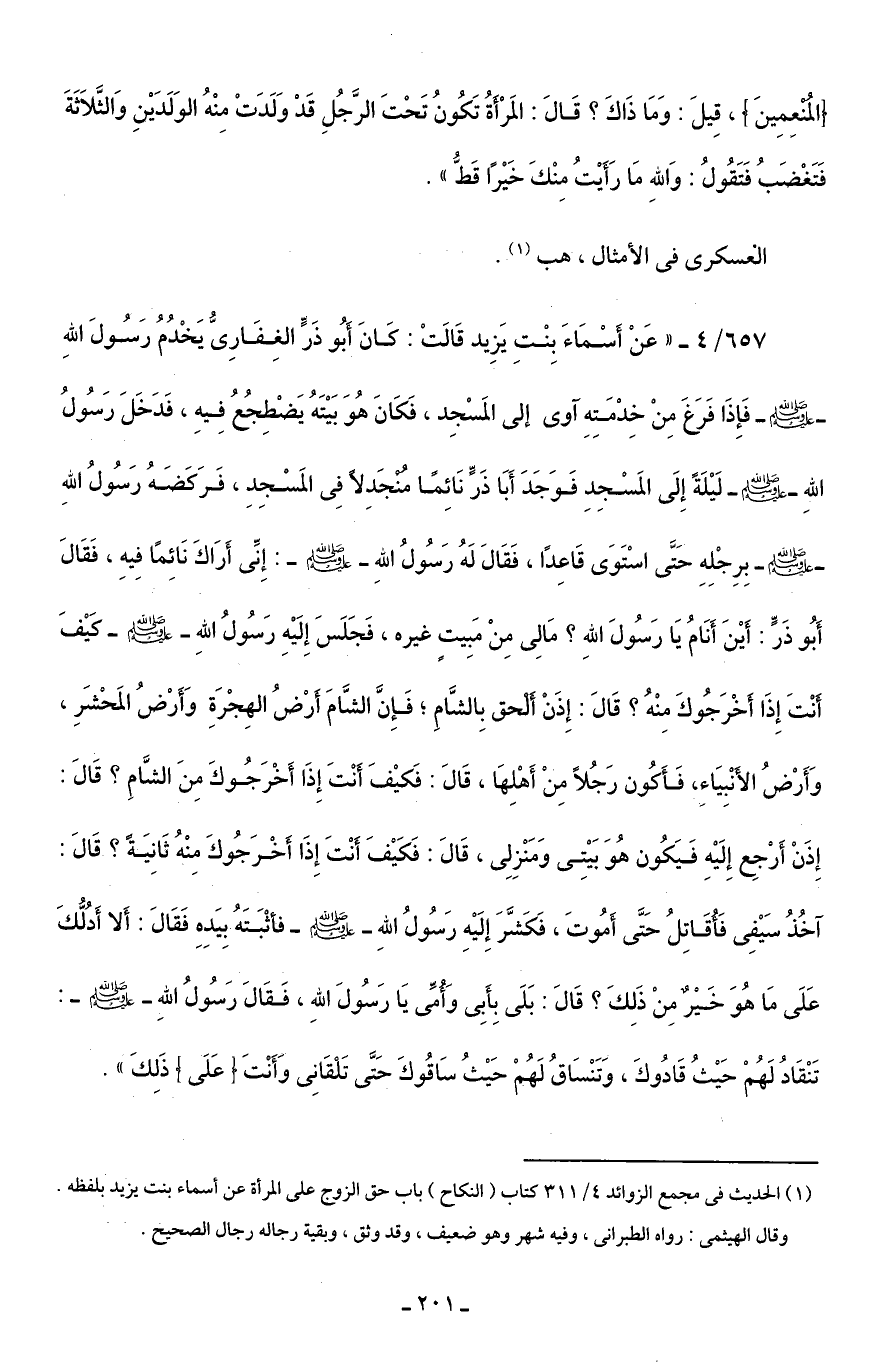 {المُنْعِمِينَ} ، قِيلَ : وَمَا ذَاكَ ؟ قَالَ : المَرْأَةُ تَكُونُ تَحْتَ الرَّجُلِ قَدْ وَلَدَتْ مِنْهُ الوَلَدَيْنِ وَالثَّلَاثَةَ
فَتَغْضَبُ فَتَقُولُ : وَاللهِ مَا رَأَيْتُ مِنْكَ خَيْرًا قَطُّ » .
العسكرى فى الأمثال ، هب (١) .
٤/٦٥٧ ـ « عَنْ أَسْمَاءَ بِنْتِ يَزِيد قَالَتْ : كَانَ أَبُو ذَرٍّ الغِفَارِىُّ يَخْدُمُ رَسُولَ اللهِ
ـ ﷺ ـ فَإِذَا فَرَغَ مِنْ خِدْمَتِهِ آوى إلى المَسْجِد ، فَكَانَ هُوَ بَيْتَهُ يَضْطَجِعُ فِيهِ ، فَدَخَلَ رَسُولُ
اللهِ ـ ﷺ ـ لَيْلَةً إِلَى المَسْجِدِ فَوَجَدَ أَبَا ذَرٍّ نَائِمًا مُنْجَدِلاً فِى المَسْجِدِ ، فَرَكَضَهُ رَسُولُ اللهِ
ـ ﷺ ـ بِرِجْلِهِ حَتَّى اسْتَوَى قَاعِدًا ، فَقَالَ لَهُ رَسُولُ اللهِ ـ ﷺ ـ : إِنِّى أَرَاكَ نَائِمًا فِيهِ ، فَقَالَ
أَبُو ذَرٍّ : أَيْنَ أَنَامُ يَا رَسُولَ اللهِ ؟ مَالِى مِنْ مَبِيتٍ غيره ، فَجَلَسَ إِلَيْهِ رَسُولُ اللهِ ـ ﷺ ـ كَيْفَ
أَنْتَ إِذَا أَخْرَجُوكَ مِنْهُ ؟ قَالَ : إِذَنْ أَلْحق بِالشَّامِ ؛ فَإِنَّ الشَّامَ أَرْضُ الهِجْرَةِ وَأَرْضُ المَحْشَرِ ،
وَأَرْضُ الأَنْبِيَاءِ، فَأَكُون رَجُلاً مِنْ أَهْلِهَا ، قَالَ : فَكَيْفَ أَنْتَ إِذَا أَخْرَجُوكَ مِنَ الشَّامِ ؟ قَالَ :
إِذَنْ أَرْجِع إِلَيْهِ فَيَكُون هُوَ بَيْتِى وَمَنْزِلِى ، قَالَ : فَكَيْفَ أَنْتَ إِذَا أَخْرَجُوكَ مِنْهُ ثَانِيَةً ؟ قَالَ :
آخُذُ سَيْفِى فَأُقَاتِلُ حَتَّى أَمُوتَ ، فَكَشَّرَ إِلَيْهِ رَسُولُ اللهِ ـ ﷺ ـ فَأَثْبَتَهُ بِيَدِهِ فَقَالَ : أَلا أَدُلُّكَ
عَلَى مَا هُوَ خَيْرٌ مِنْ ذَلِكَ ؟ قَالَ : بَلَى بِأَبِى وَأُمِّى يَا رَسُولَ اللهِ ، فَقَالَ رَسُولُ اللهِ ـ ﷺ ـ :
تَنْقَادُ لَهُمْ حَيْثُ قَادُوكَ ، وَتَنْسَاقُ لَهُمْ حَيْثُ سَاقُوكَ حَتَّى تَلْقَانِى وَأَنْتَ { عَلَى } ذَلِكَ » .
(١) الحديث فى مجمع الزوائد ٤/ ٣١١ كتاب ( النكاح ) باب حق الزوج على المرأة عن أسماء بنت يزيد بلفظه .
وقال الهيثمى : رواه الطبرانى ، وفيه شهر وهو ضعيف ، وقد وثق ، وبقية رجاله رجال الصحيح .
ـ ٢٠١ ـ